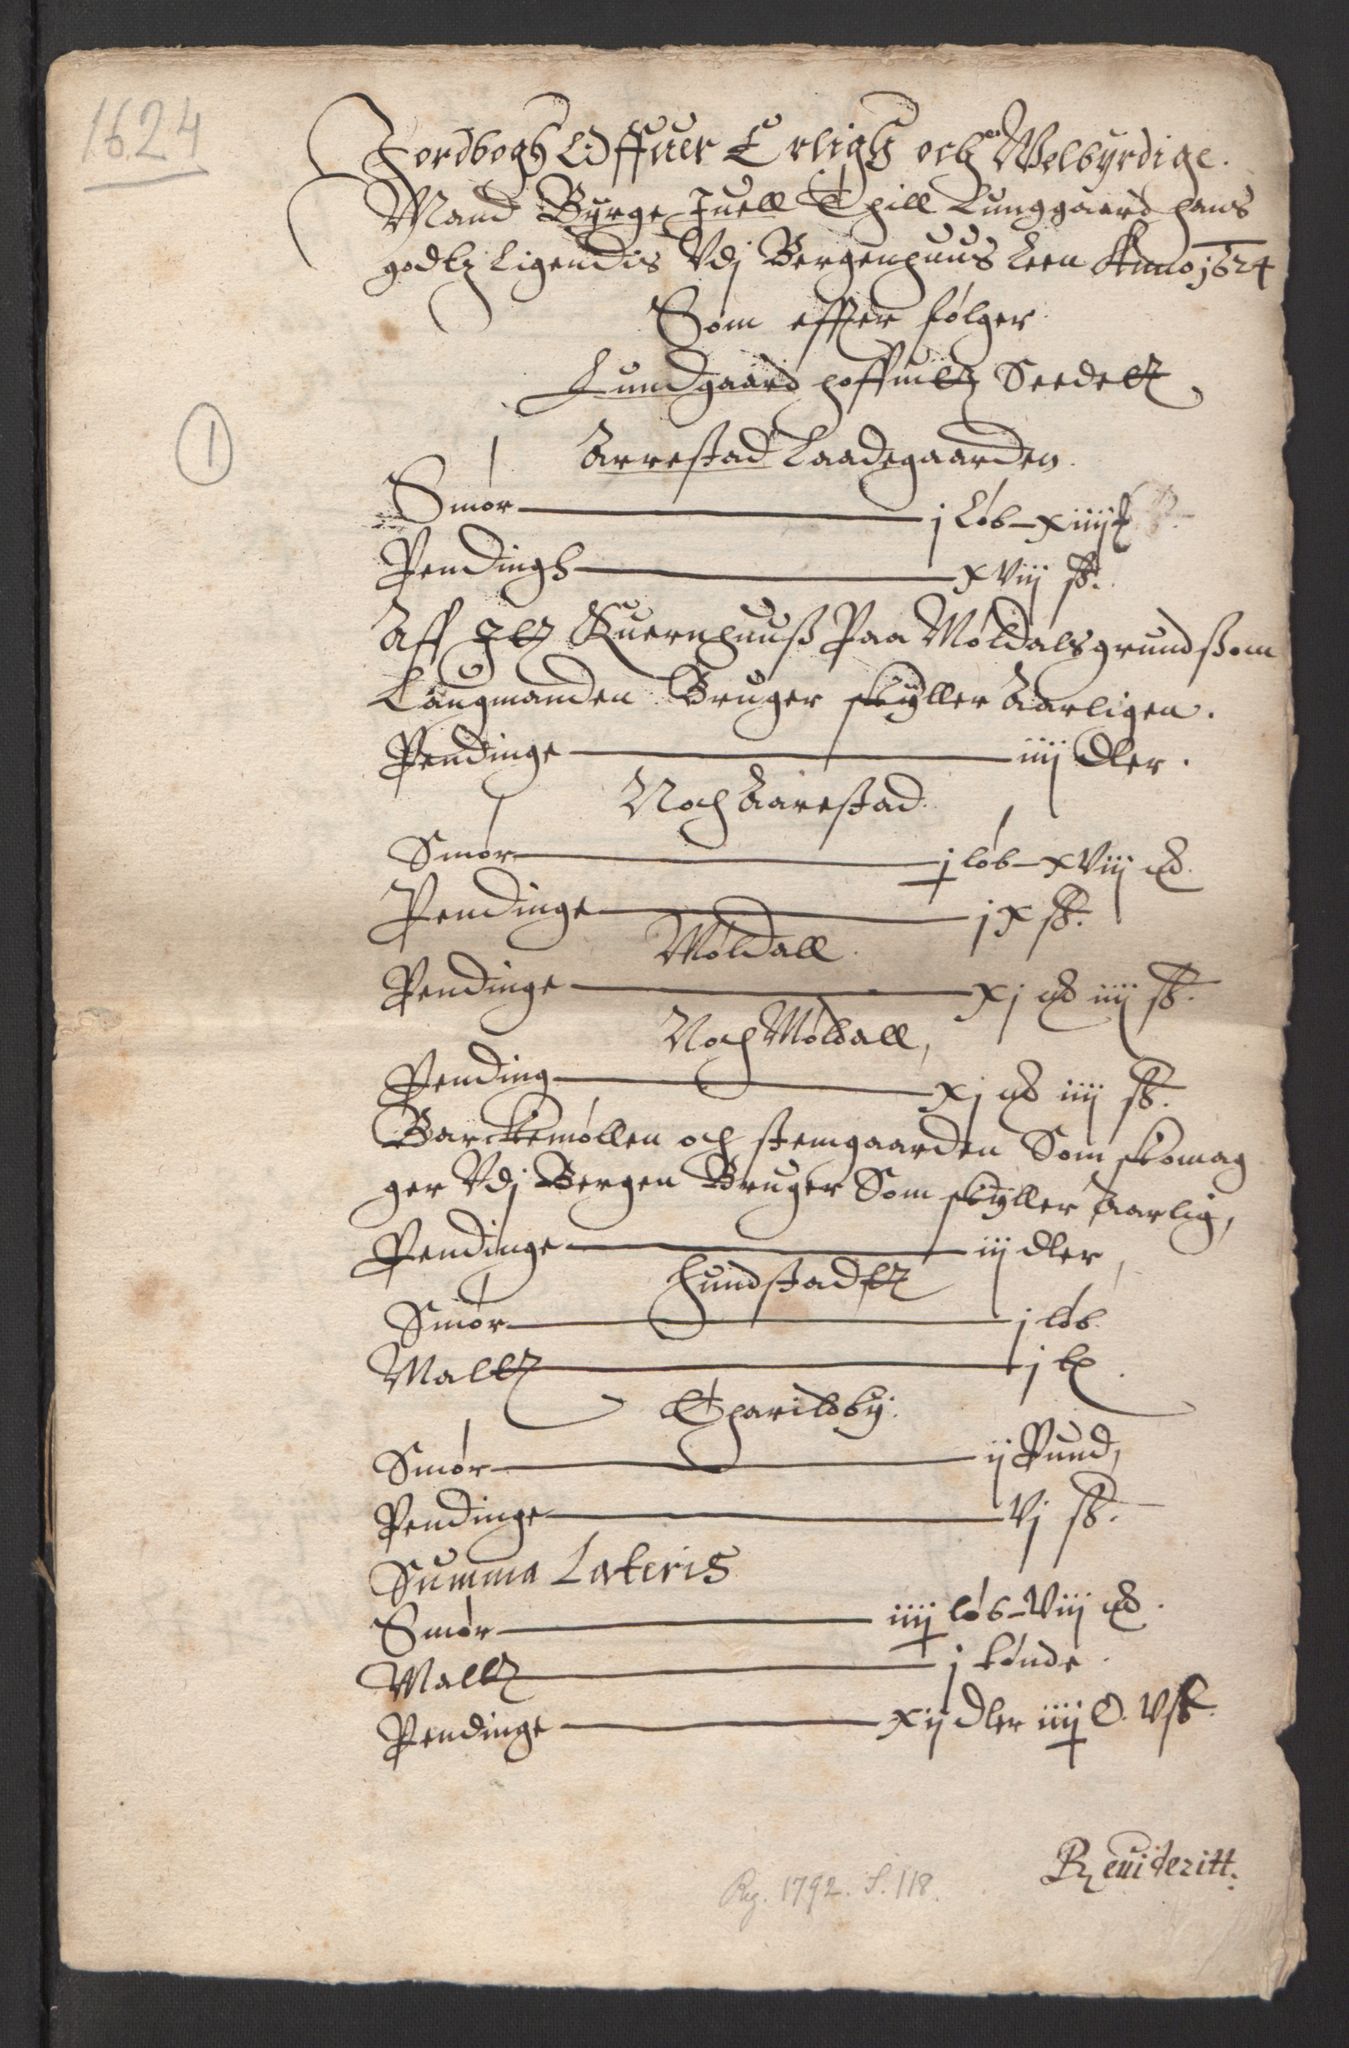 1624
Jordbogh Offuer Erligh och Welbyrdige
Mand Byrge Juell Thill Lunggaard hans
godtz Ligendis Vdj Bergenhuus Leen Anno 1624
Som effter følger
Lundgaard hoffuitz Seedett
1
Arrestad Laadegaarden.
Smør j Løb - xiiij
Pendingh xviij sk.
Aff Quernhuuss Paa Møldals grund ssom
Laugmanden Bruger skyller Aarligen.
Pendinge iiij dler.
Noch Aarestad.
Smør j løb - xviij
Pendinge jx sk.
Møldall.
Pendinge xj iiij sk.
Noch Møldall,
Pending xj iiij sk.
Barckemøllen och stemgaarden Som skomag
ger Vdj Bergen Bruger Som skyller Aarlig,
Pendinge iij dler,
Smør j løb
Malt j
Smør ij Pund,
Pendinge vj sk.
Summa Lateris
Smør iiij løb - viij
Malt j tønde.
Pendinge xij dler iiij O. v sk.
Reuideritt.
Reg. 1792. S. 118.